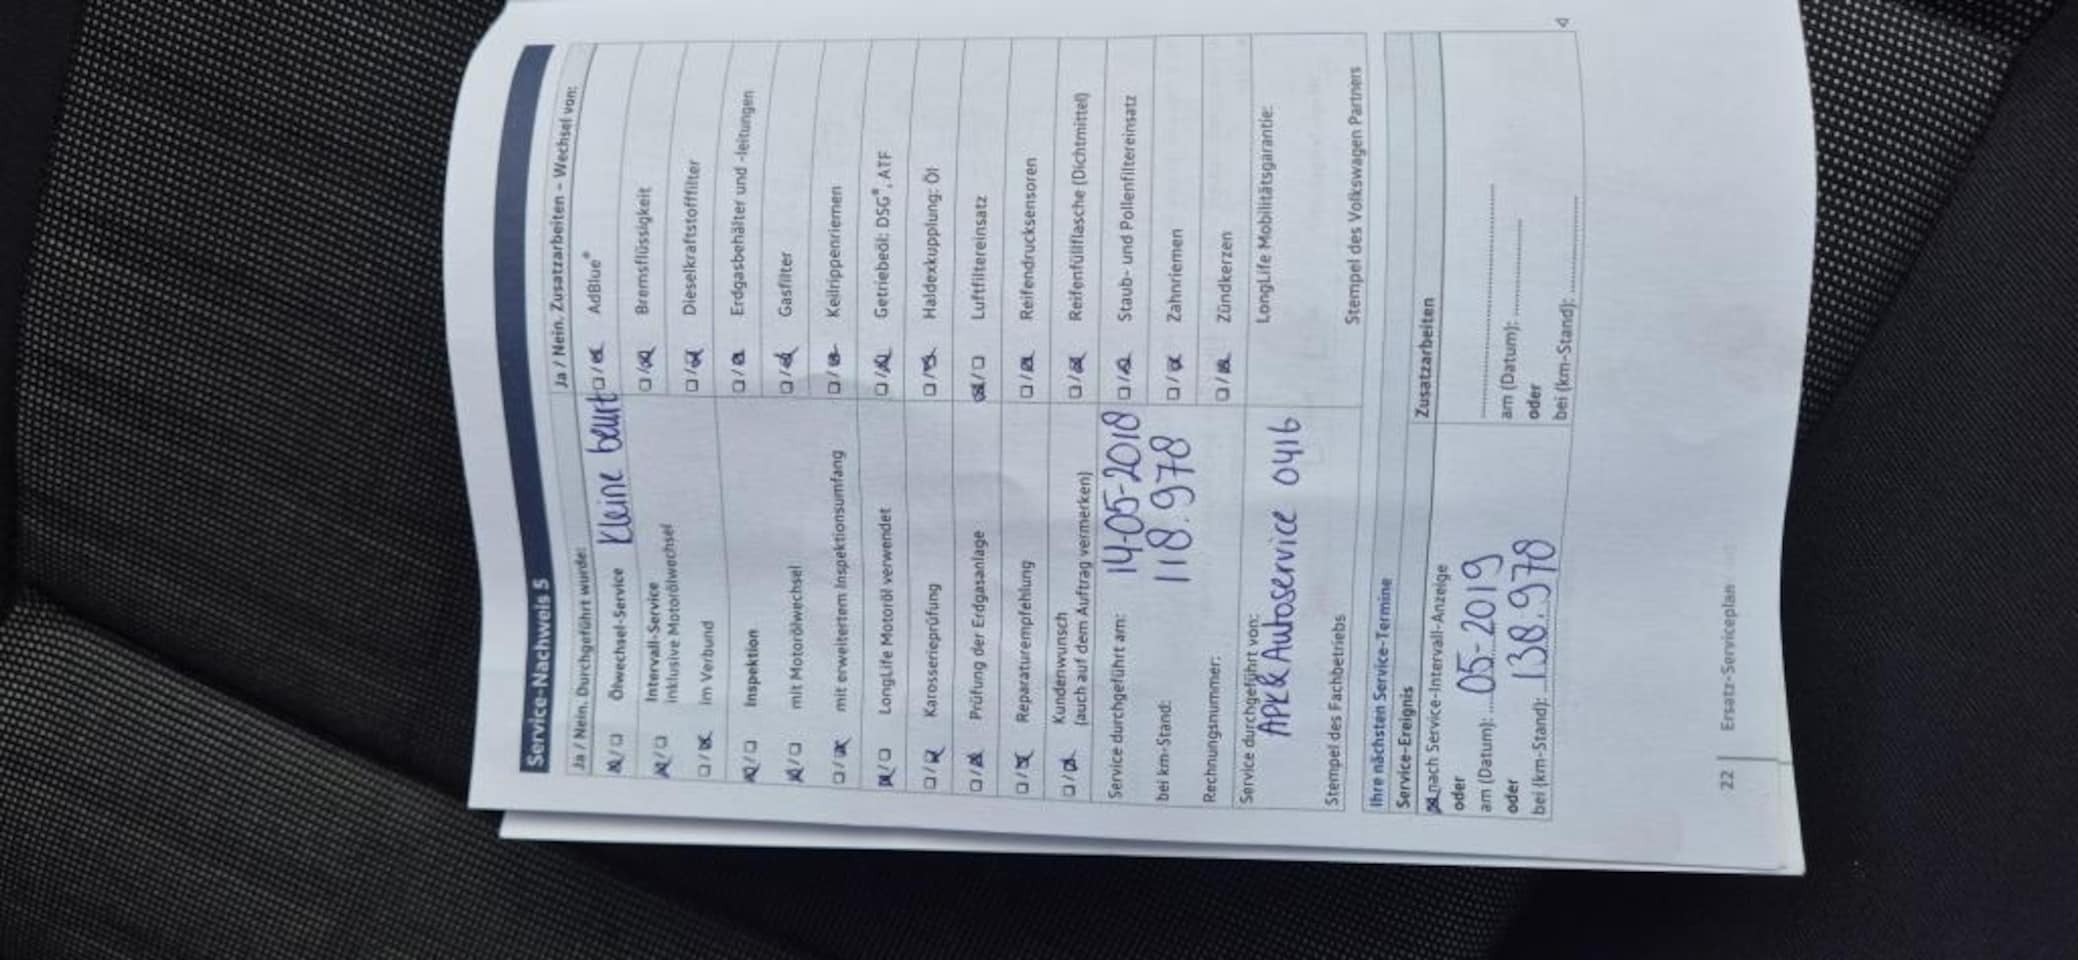 Service-Nachweis 5
Ja / Nein. Durchgeführt wurde:
Ölwechsel-Service kleine beurt
Intervall-Service
inklusive Motorölwechsel
im Verbund
Inspektion
mit Motorölwechsel
mit erweitertem Inspektionsumfang
LongLife Motoröl verwendet
Karosserieprüfung
Prüfung der Erdgasanlage
Reparaturempfehlung
Kundenwunsch
(auch auf dem Auftrag vermerken)
Service durchgeführt am: 14-05-2018
bei km-Stand: 118.978
Rechnungsnummer:
Service durchgeführt von:
APK & Autoservice 0416
Stempel des Fachbetriebs
Ja / Nein. Zusatzarbeiten – Wechsel von:
AdBlue®
Bremsflüssigkeit
Dieselkraftstofffilter
Erdgasbehälter und -leitungen
Gasfilter
Keilrippenriemen
Getriebeöl: DSG®, ATF
Haldexkupplung: Öl
Luftfiltereinsatz
Reifendrucksensoren
Reifenfüllflasche (Dichtmittel)
Staub- und Pollenfiltereinsatz
Zahnriemen
Zündkerzen
LongLife Mobilitätsgarantie:
Stempel des Volkswagen Partners
Ihre nächsten Service-Termine
Service-Ereignis
nach Service-Intervall-Anzeige
oder
am (Datum): 05-2019
oder
bei (km-Stand): 138.978
Zusatzarbeiten
am (Datum):
oder
bei (km-Stand):
22 Ersatz-Serviceplan